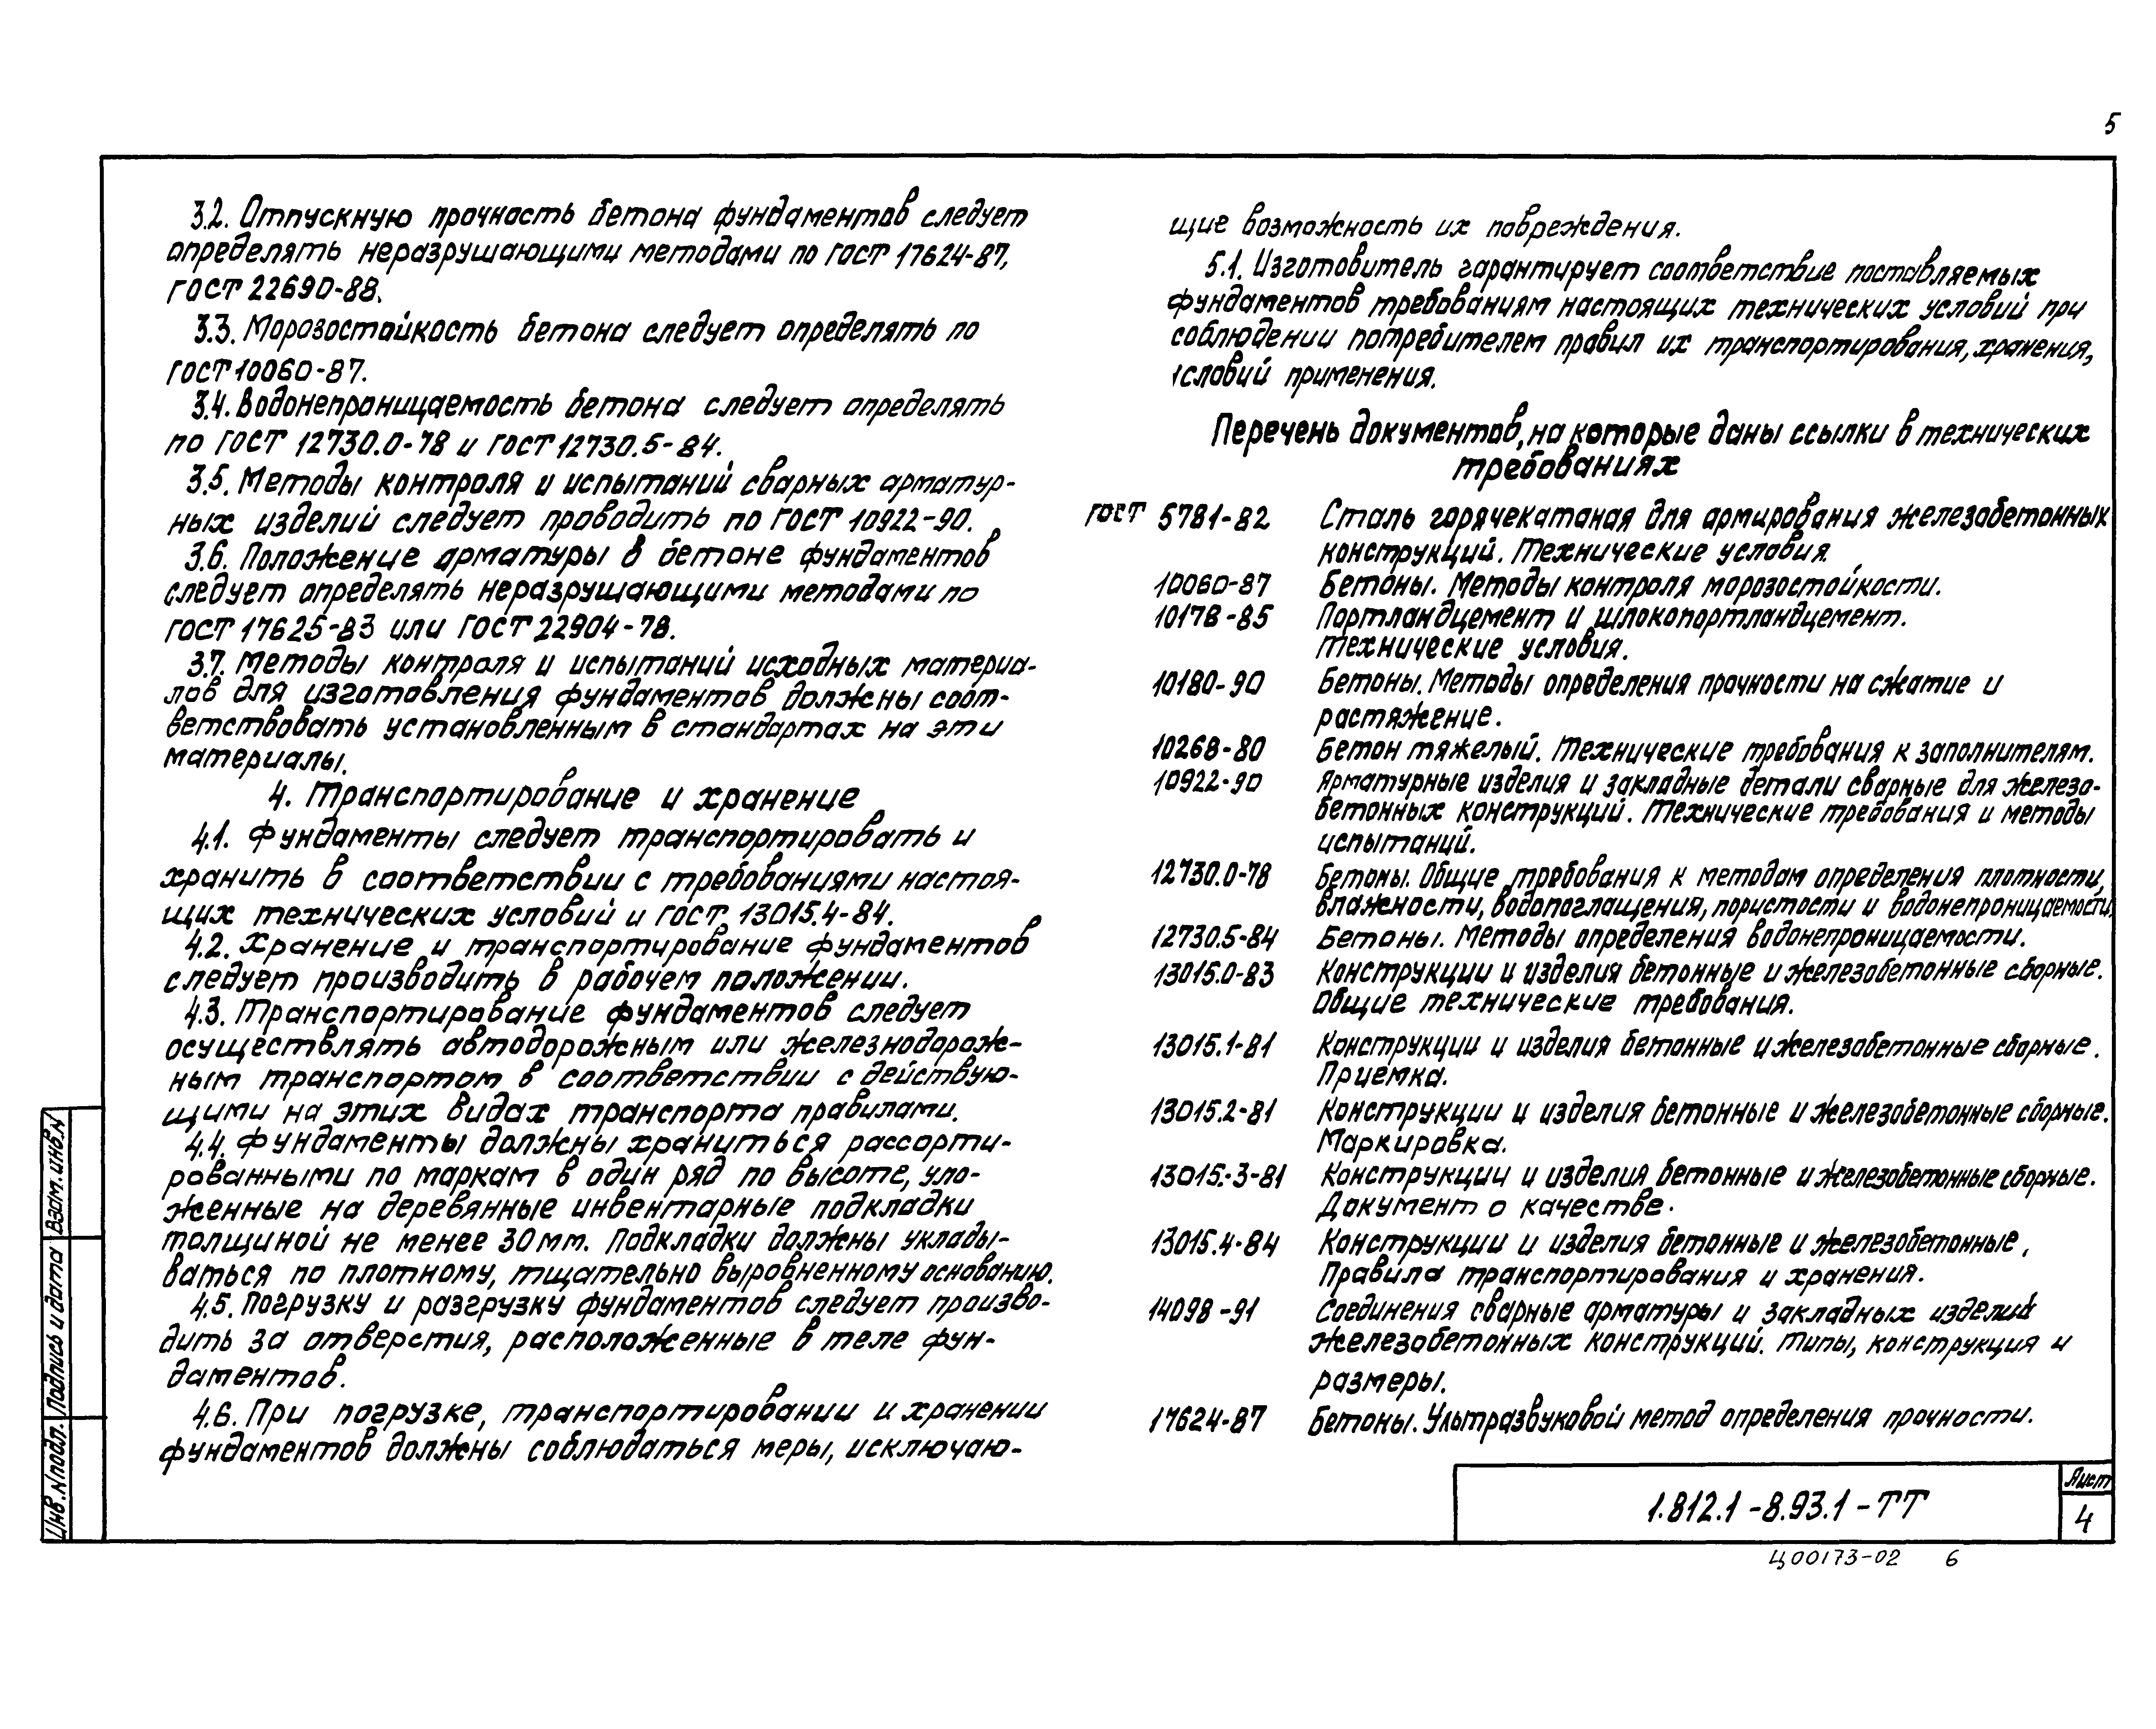 5
3.2. Отпускную прочность бетона фундаментов следует
определять неразрушающими методами по ГОСТ 17624-87,
ГОСТ 22690-88.
3.3. Морозостойкость бетона следует определять по
ГОСТ 10060-87.
3.4. Водонепроницаемость бетона следует определять
по ГОСТ 12730.0-78 и ГОСТ 12730.5-84.
3.5. Методы контроля и испытаний сварных арматур-
ных изделий следует проводить по ГОСТ 10922-90.
3.6. Положение арматуры в бетоне фундаментов
следует определять неразрушающими методами по
ГОСТ 17625-83 или ГОСТ 22904-78.
3.7. Методы контроля и испытаний исходных материа-
лов для изготовления фундаментов должны соот-
ветствовать установленным в стандартах на эти
материалы.
4. Транспортирование и хранение
4.1. Фундаменты следует транспортировать и
хранить в соответствии с требованиями настоя-
щих технических условий и ГОСТ 13015.4-84.
4.2. Хранение и транспортирование фундаментов
следует производить в рабочем положении.
4.3. Транспортирование фундаментов следует
осуществлять автодорожным или железнодорож-
ным транспортом в соответствии с действую-
щими на этих видах транспорта правилами.
4.4. Фундаменты должны храниться рассорти-
рованными по маркам в один ряд по высоте, уло-
женные на деревянные инвентарные подкладки
толщиной не менее 30 мм. Подкладки должны уклады-
ваться по плотному, тщательно выровненному основанию.
4.5. Погрузку и разгрузку фундаментов следует произво-
дить за отверстия, расположенные в теле фун-
даментов.
4.6. При погрузке, транспортировании и хранении
фундаментов должны соблюдаться меры, исключаю-
щие возможность их повреждения.
5.1. Изготовитель гарантирует соответствие поставляемых
фундаментов требованиям настоящих технических условий при
соблюдении потребителем правил их транспортирования, хранения,
условий применения.
Перечень документов, на которые даны ссылки в технических
требованиях
ГОСТ 5781-82 Сталь горячекатаная для армирования железобетонных
конструкций. Технические условия.
10060-87 Бетоны. Методы контроля морозостойкости.
10178-85 Портландцемент и шлокопортландцемент.
Технические условия.
10180-90 Бетоны. Методы определения прочности на сжатие и
растяжение.
10268-80 Бетон тяжелый. Технические требования к заполнителям.
10922-90 Арматурные изделия и закладные детали сварные для железо-
бетонных конструкций. Технические требования и методы
испытаний.
12730.0-78 Бетоны. Общие требования к методам определения плотности,
влажности, водопоглащения, пористости и водонепроницаемости.
12730.5-84 Бетоны. Методы определения водонепроницаемости.
13015.0-83 Конструкции и изделия бетонные и железобетонные сборные.
Общие технические требования.
13015.1-81 Конструкции и изделия бетонные и железобетонные сборные.
Приемка.
13015.2-81 Конструкции и изделия бетонные и железобетонные сборные.
Маркировка.
13015.-3-81 Конструкции и изделия бетонные и железобетонные сборные.
Документ о качестве.
13015.4-84 Конструкции и изделия бетонные и железобетонные.
Правила транспортирования и хранения.
14098-91 Соединения сварные арматуры и закладных изделий
железобетонных конструкций. Типы, конструкция и
размеры.
17624-87 Бетоны. Ультразвуковой метод определения прочности.
Взам. инв. N
Подпись и дата
Инв. N подл.
1.812.1-8.93.1-ТТ
Лист
4
Ц00173-02 6